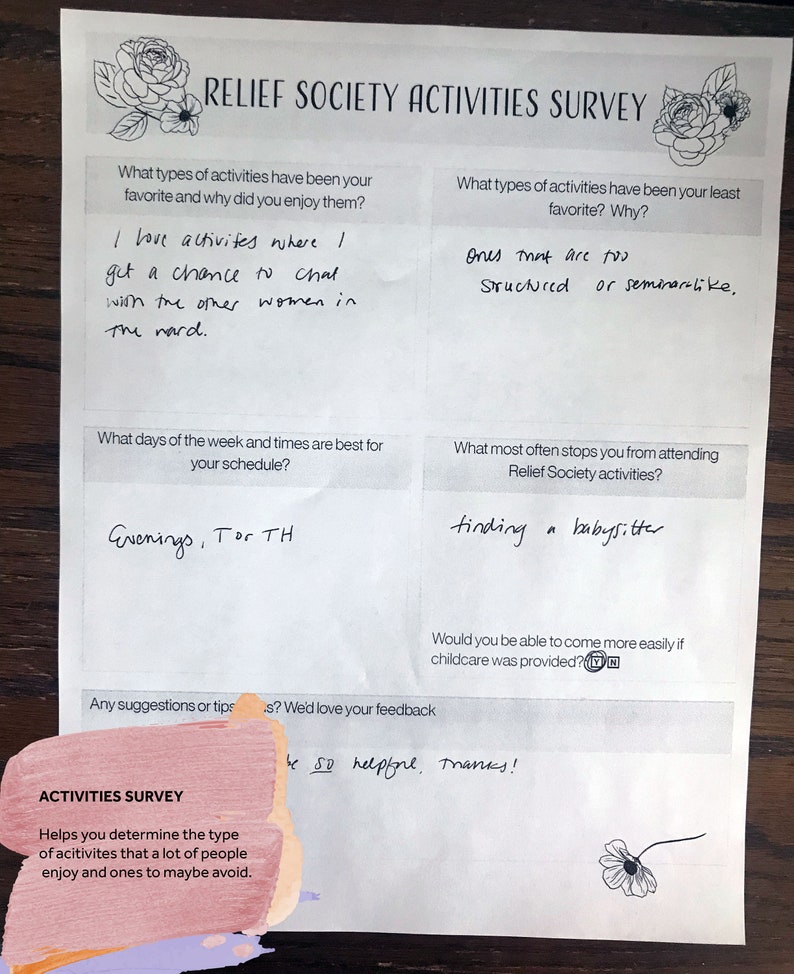 RELIEF SOCIETY ACTIVITIES SURVEY
What types of activities have been your
favorite and why did you enjoy them?
I love activites where I
get a chance to chat
with the other women in
the ward.
What types of activities have been your least
favorite? Why?
Ones that are too
structured or seminar-like.
What days of the week and times are best for
your schedule?
Evenings, T or TH
What most often stops you from attending
Relief Society activities?
finding a babysitter
Would you be able to come more easily if
childcare was provided? Y N
Any suggestions or tips s? We'd love your feedback
be so helpful, thanks!
ACTIVITIES SURVEY
Helps you determine the type
of acitivites that a lot of people
enjoy and ones to maybe avoid.